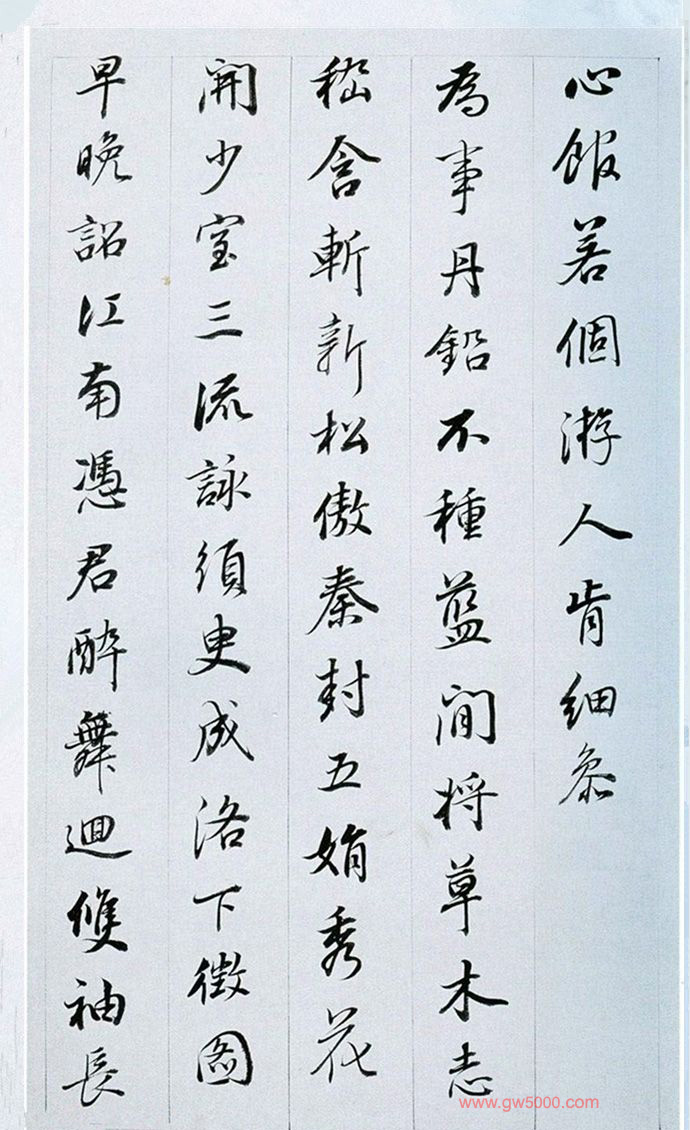 心館若個游人肯細參
為事丹鉛不種藍間將草木志
嵇含斬新松傲秦封五娟秀花
開少室三流詠須臾成洛下徵圖
早晚詔江南憑君醉舞迴雙袖長
www.gw5000.com